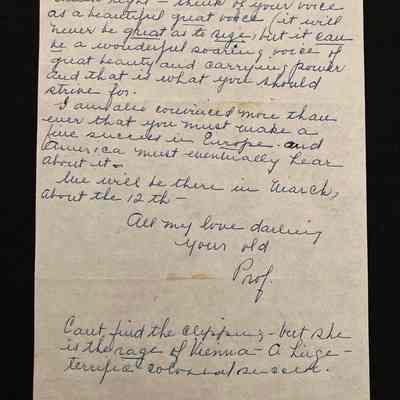 right - think of your voice
as a beautiful great voice (it will
never be great as to size, but it can
be a wonderful soaring voice of
great beauty and carrying power
and that is what you should
strive for.
I am also convinced more than
ever that you must make a
fine success in Europe - and
America must eventually hear
about it -
We will be there in March,
about the 12th -
All my love darling
Your old
Prof.
Can't find the clipping - but she
is the rage of Vienna - A Liège -
terrific colossal success.